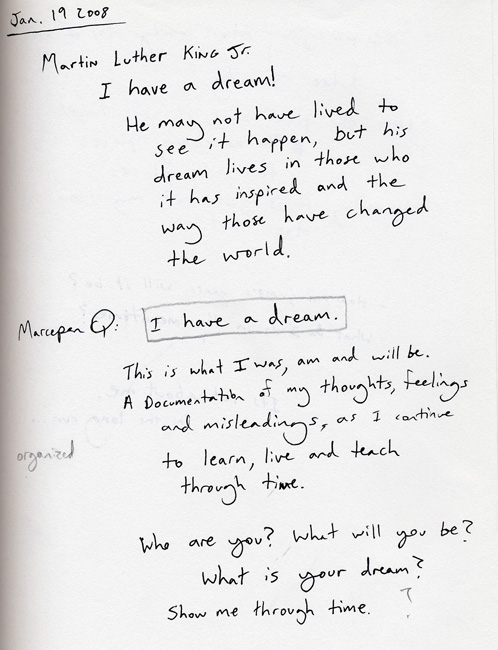 Jan. 19 2008
Martin Luther King Jr.
I have a dream!
He may not have lived to
see it happen, but his
dream lives in those who
it has inspired and the
way those have changed
the world.
Marcepan Q: I have a dream.
This is what I was, am and will be.
A Documentation of my thoughts, feelings
and misleadings, as I continue
organized
to learn, live and teach
through time.
Who are you? What will you be?
What is your dream?
Show me through time. ?